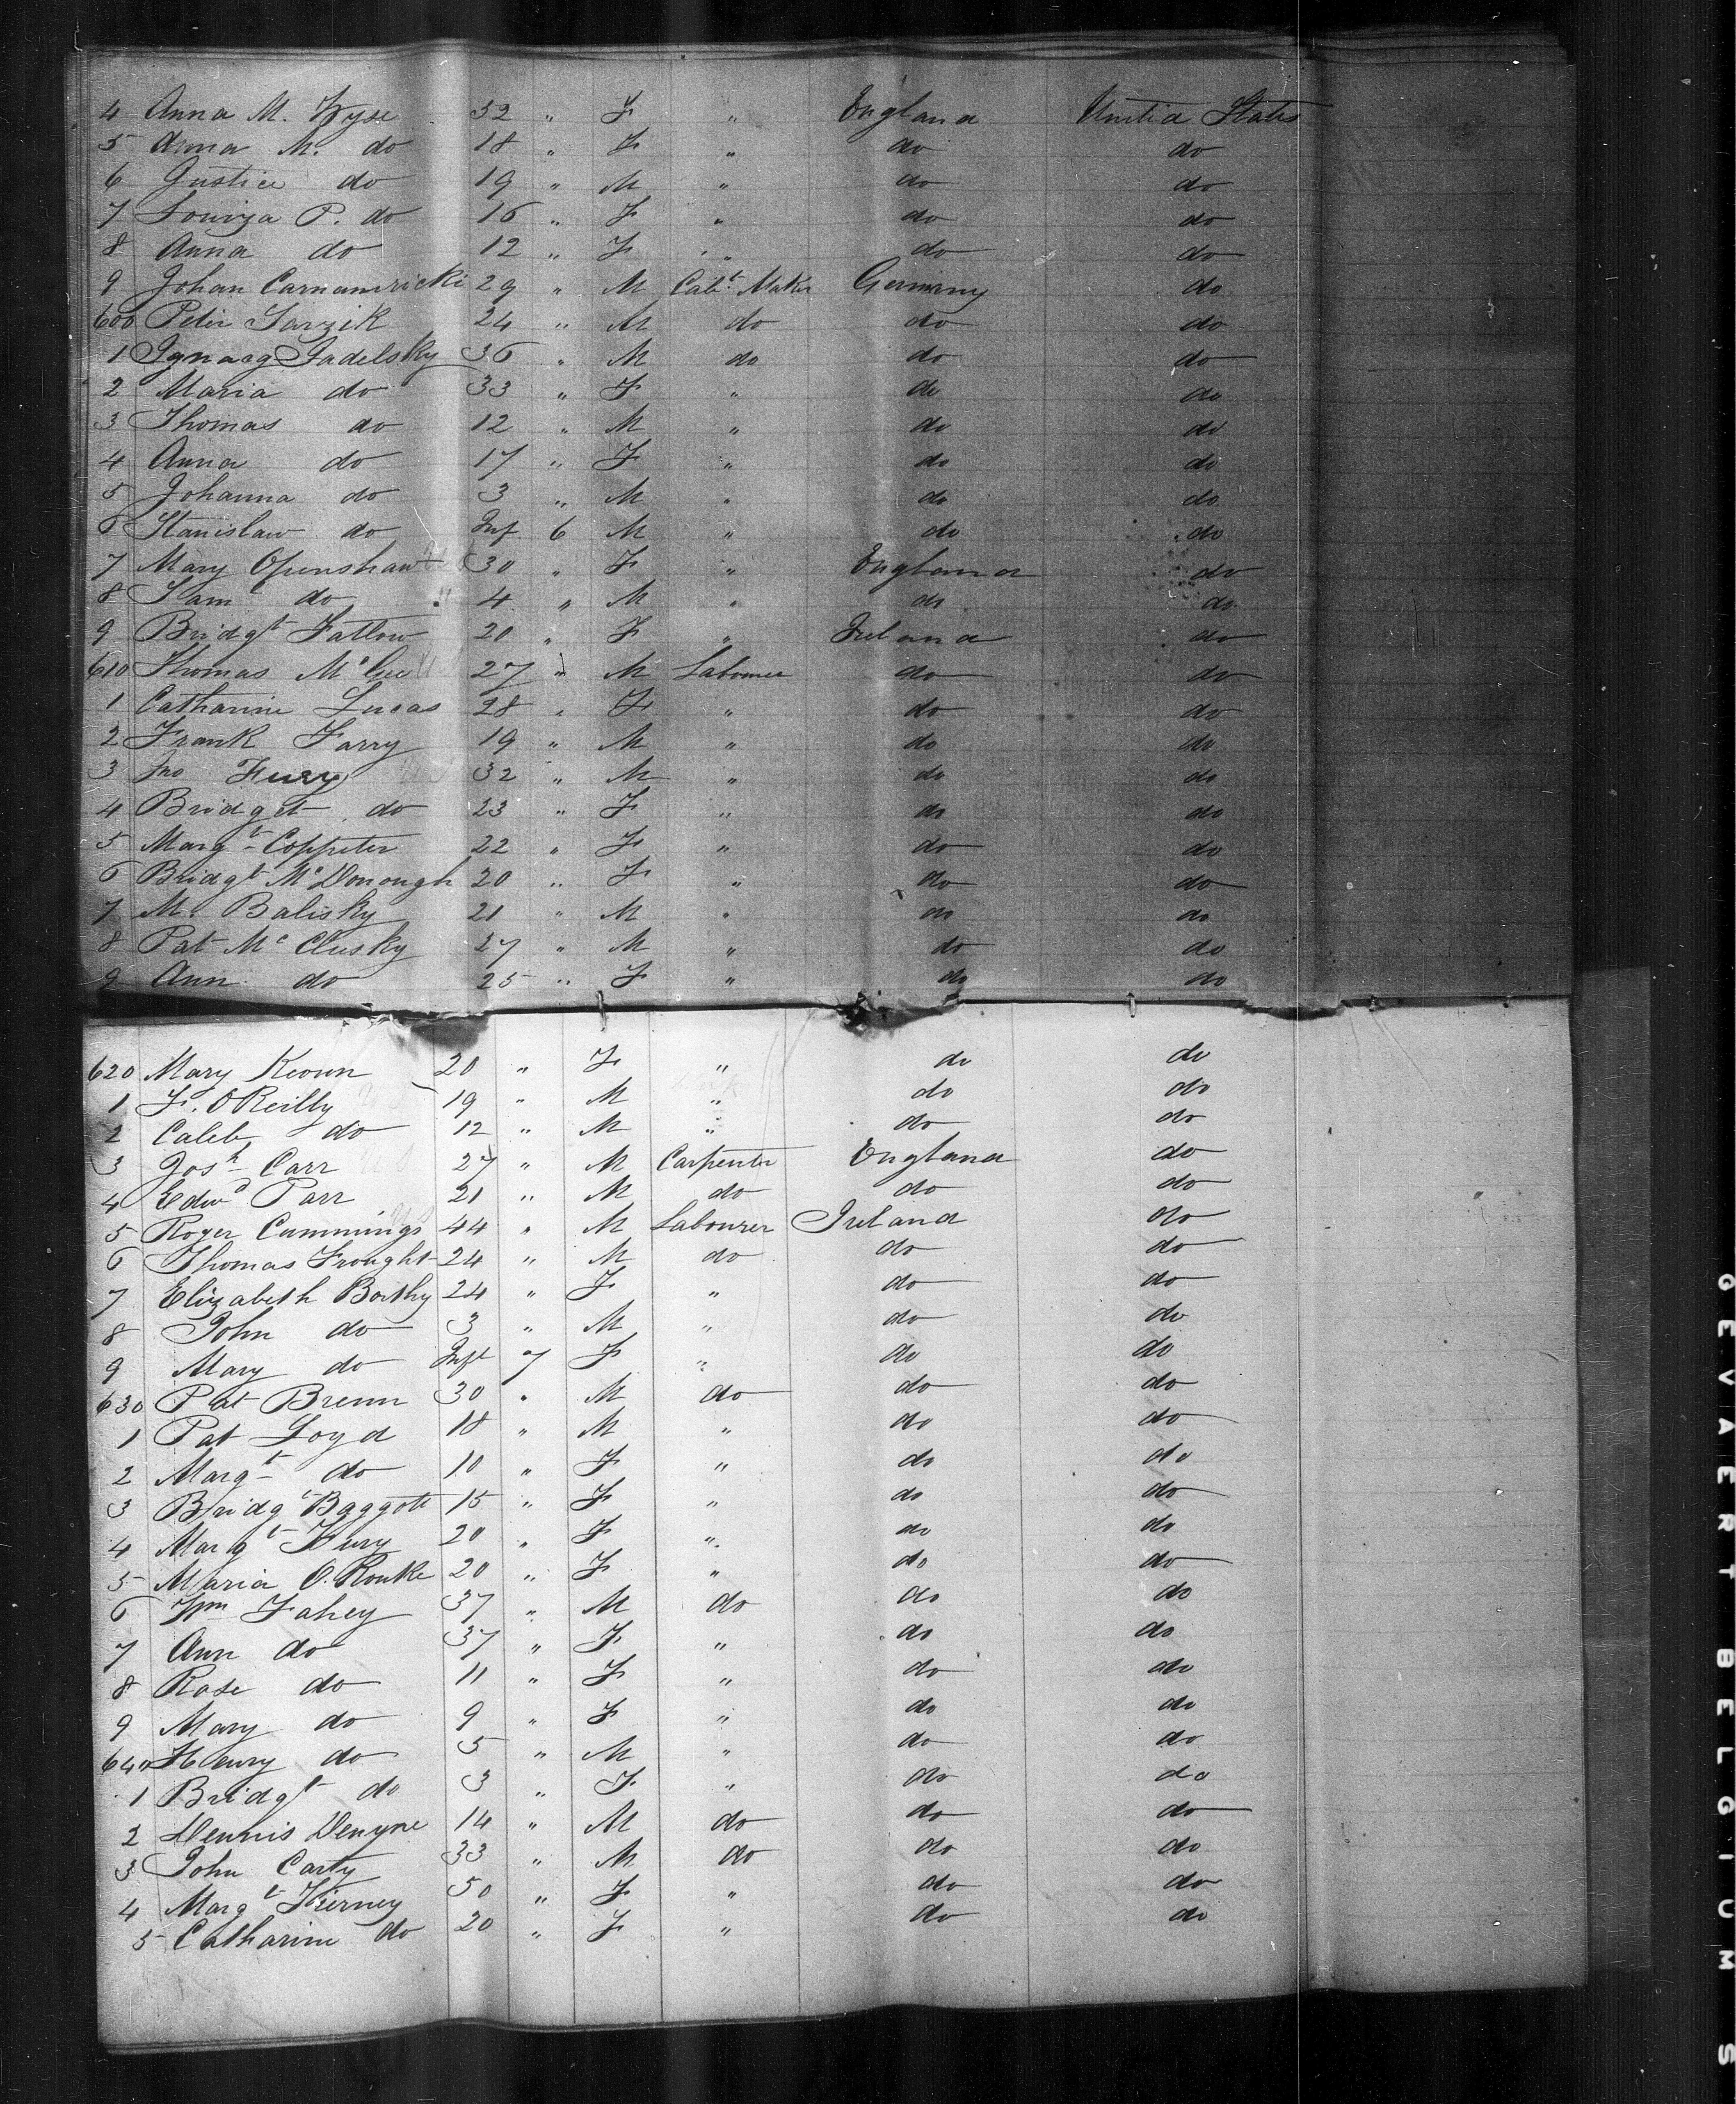 4 Anna M. Wyse 32 " F " England United States
5 Anna M. do 18 " F " do do
6 Justice do 19 " M " do do
7 Louiza P. do 16 " F " do do
8 Anna do 12 " F " do do
9 Johan 29 " M Cabt. Maker Germany do
600 Peter Sarzik 24 " M do do do
1 36 " M do do do
2 Maria do 33 " F " do do
3 Thomas do 12 " M " do do
4 Anna do 17 " F " do do
5 Johanna do 3 " M " do do
6 Stanislaw do Inf 6 M " do do
7 Mary Openshaw 30 " F " England do
8 Saml do 4 " M " do do
9 Bridgt Fatlow 20 " F " Ireland do
610 Thomas McGee 27 " M Labourer do do
1 Catharine Lucas 28 " F " do do
2 Frank Farry 19 " M " do do
3 Jno Fury 32 " M " do do
4 Bridget do 23 " F " do do
5 Margt Coppeter 22 " F " do do
6 Bridgt McDonough 20 " F " do do
7 M. Balisky 21 " M " do do
8 Pat McClusky 27 " M " do do
9 Ann do 25 " F " do do
620 Mary Keown 20 " F " do do
1 F. O'Reilly 19 " M " do do
2 Caleb do 12 " M " do do
3 Josh Carr 27 " M Carpenter England do
4 Edwd Parr 21 " M do do do
5 Roger Cummings 44 " M Labourer Ireland do
6 Thomas Frought 24 " M do do do
7 Elizabeth Boithy 24 " F " do do
8 John do 3 " M " do do
9 Mary do Inft 7 F " do do
630 Pat Brenn 30 " M do do do
1 Pat Loyd 18 " M " do do
2 Margt do 10 " F " do do
3 Bridgt Baggott 15 " F " do do
4 Margt Fury 20 " F " do do
5 Maria O.Rouke 20 " F " do do
6 Wm Fahey 37 " M do do do
7 Ann do 37 " F " do do
8 Rose do 11 " F " do do
9 Mary do 9 " F " do do
640 Henry do 5 " M " do do
1 Bridgt do 3 " F " do do
2 Dennis Denyne 14 " M do do do
3 John Carty 33 " M do do do
4 Margt Tierney 50 " F " do do
5 Catharine do 20 " F " do do
GEVAERT BELGIUM S